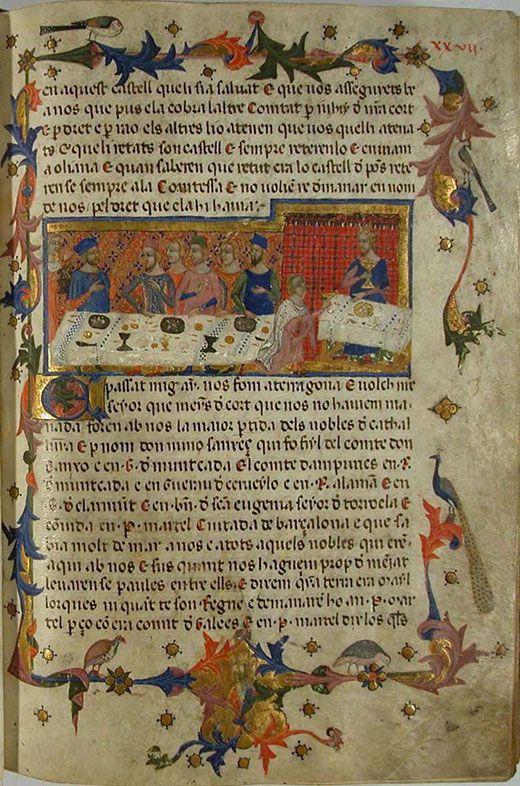 XXVII.
en aquest castell quels sia saluat E que uos assegurets
a nos que pus ela cobra laltre Comtat per uostra cort
E per dret e per rao els altres ho atenen que uos quelh atenats
E quelh retats son castell E sempre reterenlo E en mam
E quan saberen que retut era lo castell
se sempre ala Comtessa E no uolgren romanir en nom
de nos, pel dret que ela hi hauia.
passat mig any nos fom a terragona E uolch nostre
seyor que menys de cort que nos no hauiem ma
nada foren ab nos la maior partida dels nobles de cathal
E per nom don nuno sanxes qui fo fiyl del comte don
Sanxo e en .G. de muntcada El comte dampuries en .R.
de muntcada e en Guerau de ceruelo e en .R. alaman E en
.G. de claramunt E en .bn. de sca eugenia seyor de torroela E
en .P. martel Ciutada de barçalona e que sa
bia molt de mar a nos e a tots aquels nobles qui eren
aqui ab nos E sus quant nos haguem prop de menjat
leuaren se paules entre ells. E direm quina terra era mayl
lorques ni quant te son Regne e demanaren ho a .P. mar
tel per ço com era comit de Galees E en .P. martel dix los